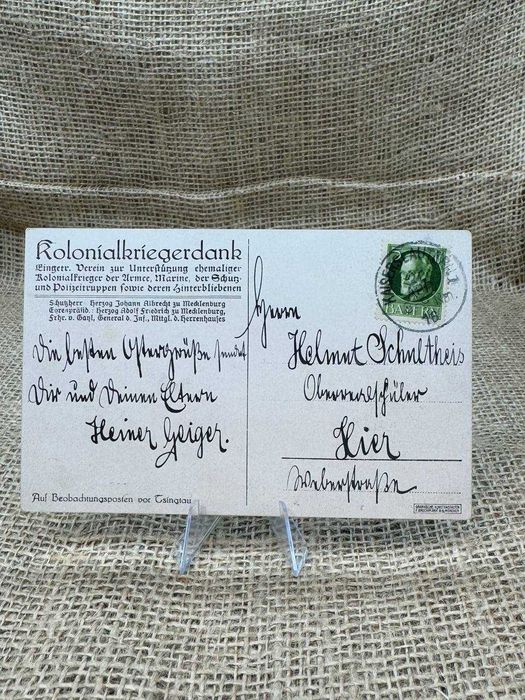 Kolonialkriegerdank
Eingetr. Verein zur Unterstützung ehemaliger
Kolonialkrieger der Armee, Marine, der Schutz-
und Polizeitruppen sowie deren Hinterbliebenen
Schutzherr Herzog Johann Albrecht zu Mecklenburg
Ehrenpräsid.: Herzog Adolf Friedrich zu Mecklenburg,
Frhr. v. Gayl, General d. Inf., Mitgl. d. Herrenhauses
Die besten Ostergrüße sendet
Dir und Deinen Eltern
Heiner Geiger.
Auf Beobachtungsposten vor Tsingtau
Herrn
Helmut Schultheis
Oberrealschüler
Hier
Weberstraße